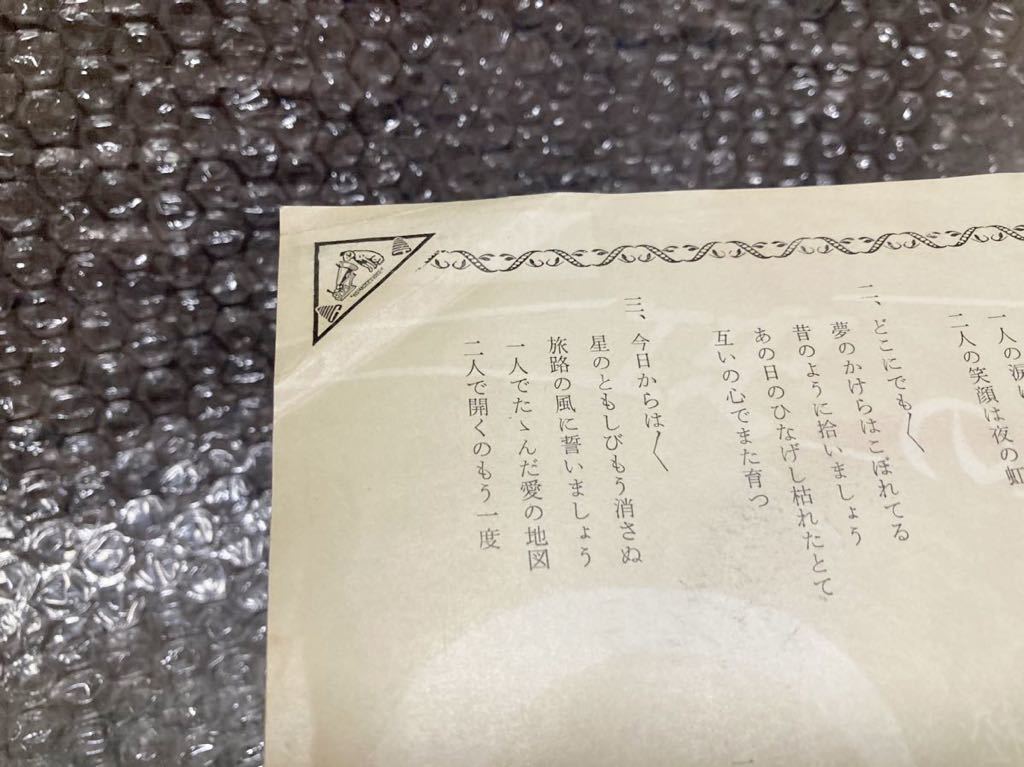 一人の涙は
二人の笑顔は夜の虹
二、どこにでも〳〵
夢のかけらはこぼれてる
昔のように拾いましょう
あの日のひなげし枯れたとて
互いの心でまた育つ
三、今日からは〳〵
星のともしびもう消さぬ
旅路の風に誓いましょう
一人でたゝんだ愛の地図
二人で開くのもう一度